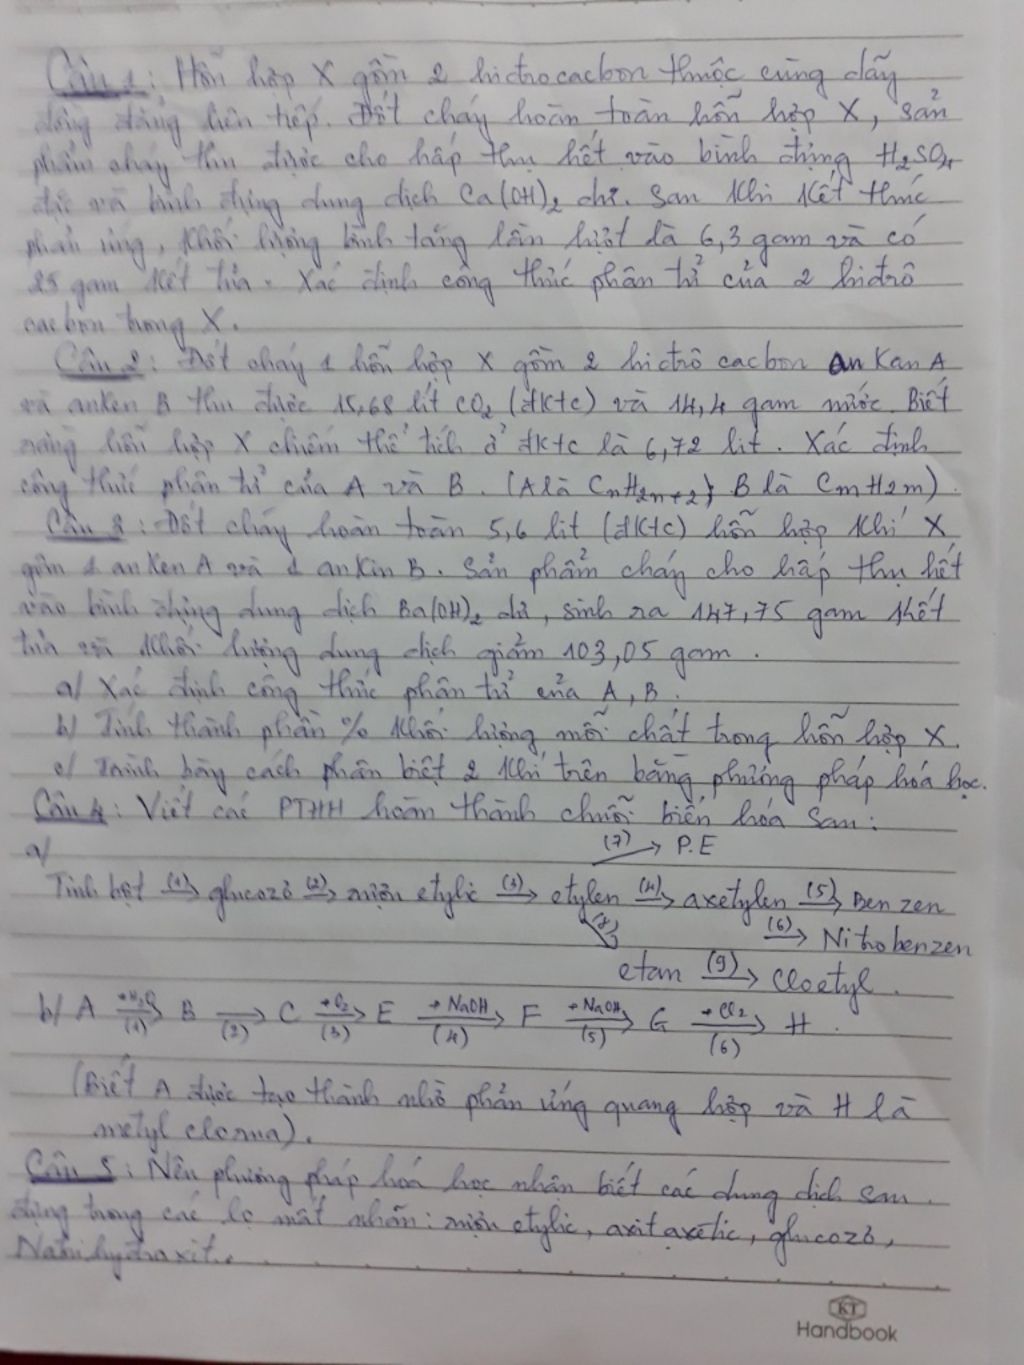 Câu 1: Hỗn hợp X gồm 2 hiđrocacbon thuộc cùng dãy
đồng đẳng liên tiếp. Đốt cháy hoàn toàn hỗn hợp X, sản
phẩm cháy thu được cho hấp thụ hết vào bình đựng H₂SO₄
đặc và bình đựng dung dịch Ca(OH)₂ dư. Sau khi kết thúc
phản ứng, khối lượng bình tăng lần lượt là 6,3 gam và có
25 gam kết tủa. Xác định công thức phân tử của 2 hiđrô
cacbon trong X.
Câu 2: Đốt cháy 1 hỗn hợp X gồm 2 hiđrô cacbon ankan A
và anken B thu được 15,68 lít CO₂ (đktc) và 14,4 gam nước. Biết
rằng hỗn hợp X chiếm thể tích ở đktc là 6,72 lit. Xác định
công thức phân tử của A và B. (A là CnH2n+2; B là CmH2m).
Câu 3: Đốt cháy hoàn toàn 5,6 lit (đktc) hỗn hợp khí X
gồm 1 anken A và 1 ankin B. Sản phẩm cháy cho hấp thụ hết
vào bình đựng dung dịch Ba(OH)₂ dư, sinh ra 147,75 gam kết
tủa và khối lượng dung dịch giảm 103,05 gam.
a/ Xác định công thức phân tử của A, B.
b/ Tính thành phần % khối lượng mỗi chất trong hỗn hợp X.
c/ Trình bày cách phân biệt 2 khí trên bằng phương pháp hoá học.
Câu 4: Viết các PTHH hoàn thành chuỗi biến hóa sau:
a/
(7)→ P.E
Tinh bột (1)→ glucozơ (2)→ rượu etylic (3)→ etylen (4)→ axetylen (5)→ Benzen
(8) (6)→ Nitrobenzen
etan (9)→ Cloetyl.
b/ A +H₂O (1)→ B (2)→ C +O₂ (3)→ E +NaOH (4)→ F +NaOH (5)→ G +Cl₂ (6)→ H.
(Biết A được tạo thành nhờ phản ứng quang hợp và H là
metyl clorua).
Câu 5: Nêu phương pháp hoá học nhận biết các dung dịch sau
đựng trong các lọ mất nhãn: rượu etylic, axit axetic, glucozơ,
Natri hydroxit.
KT
Handbook